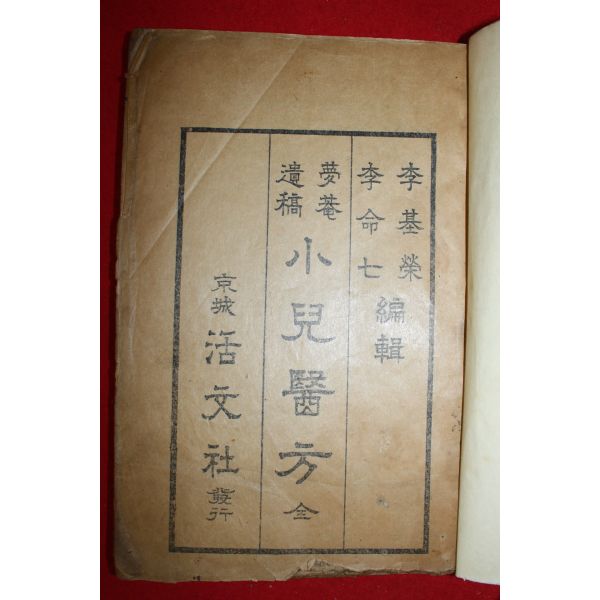 李基榮
李命七
編輯
夢菴
遺稿
小兒醫方 全
京城
活文社
發行